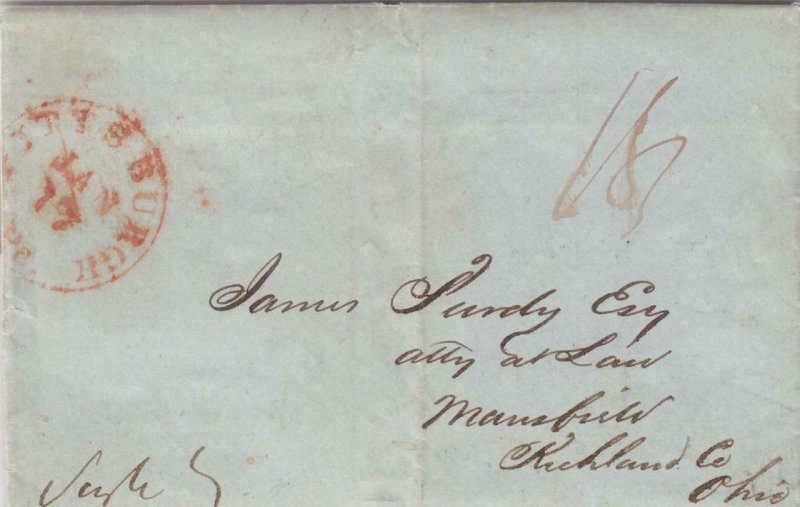 PITTSBURGH
James Purdy Esq
atty at Law
Mansfield
Richland Co
Ohio
Single